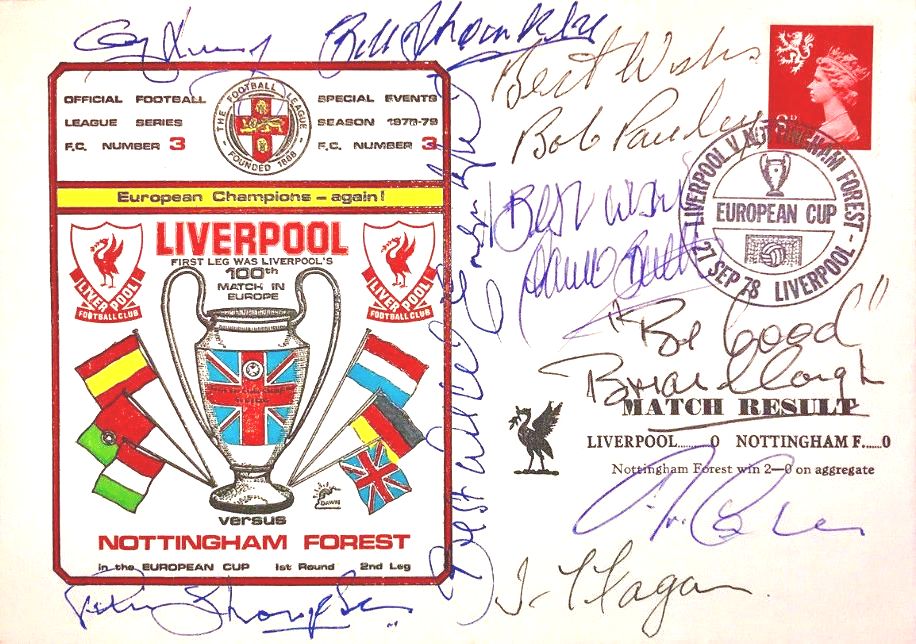 Bill Shankly
Best Wishes
Bob Paisley
OFFICIAL FOOTBALL
LEAGUE SERIES
F.C. NUMBER 3
THE FOOTBALL LEAGUE
FOUNDED 1888
SPECIAL EVENTS
SEASON 1978-79
F.C. NUMBER 3
European Champions – again!
LIVERPOOL
FIRST LEG WAS LIVERPOOL'S
100th
MATCH IN
EUROPE
LIVERPOOL
FOOTBALL CLUB
LIVERPOOL
FOOTBALL CLUB
DAWN
versus
NOTTINGHAM FOREST
in the EUROPEAN CUP 1st Round 2nd Leg
Best wishes
LIVERPOOL V NOTTINGHAM FOREST
EUROPEAN CUP
27 SEP 78 LIVERPOOL
"Be Good"
Brian Clough
MATCH RESULT
LIVERPOOL.........0 NOTTINGHAM F......0
Nottingham Forest win 2—0 on aggregate
J Fagan
Phil Thompson